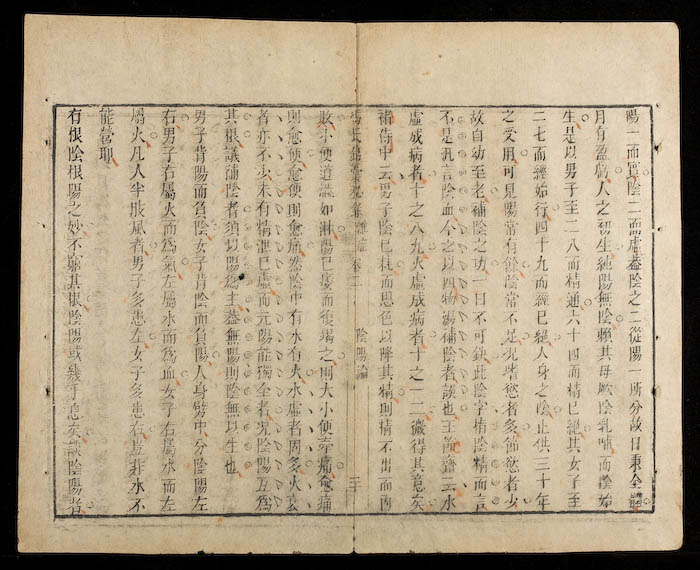 陽一而實陰二而虛蓋陰之二從陽一所分故日秉全體
月有盈虧人之初生純陽無陰賴其母厥陰乳哺而陰始
生是以男子至二八而精通六十四而精已絕其女子至
二七而經始行四十九而經已絕人身之陰止供三十年
之受用可見陽常有餘陰常不足況嗜慾者多節慾者少
故自幼至老補陰之功一日不可缺此陰字指陰精而言
不是泛言陰血今之以四物湯補陰者誤也王節齋云水
虛成病者十之八九火虛成病者十之一二微得其意矣
褚侍中云男子陰已耗而思色以降其精則精不出而內
馮氏錦囊秘錄 雜症 陰陽論 三
敗小便道澁如淋陽已痿而復竭之則大小便牽痛愈痛
則愈便愈便則愈痛然陰中有水有火水虛者固多火衰
者亦不少未有精泄已虛而元陽能獨全者況陰陽互為
其根議補陰者須以陽為主蓋無陽則陰無以生也
男子背陽而負陰女子背陰而負陽人身劈中分陰陽左
右男子右屬火而為氣左屬水而為血女子右屬水而左
屬火凡人半肢風者男子多患左女子多患右豈非水不
能營耶
有根陰根陽之妙不窮其根陰陽或幾乎息矣談陰陽者